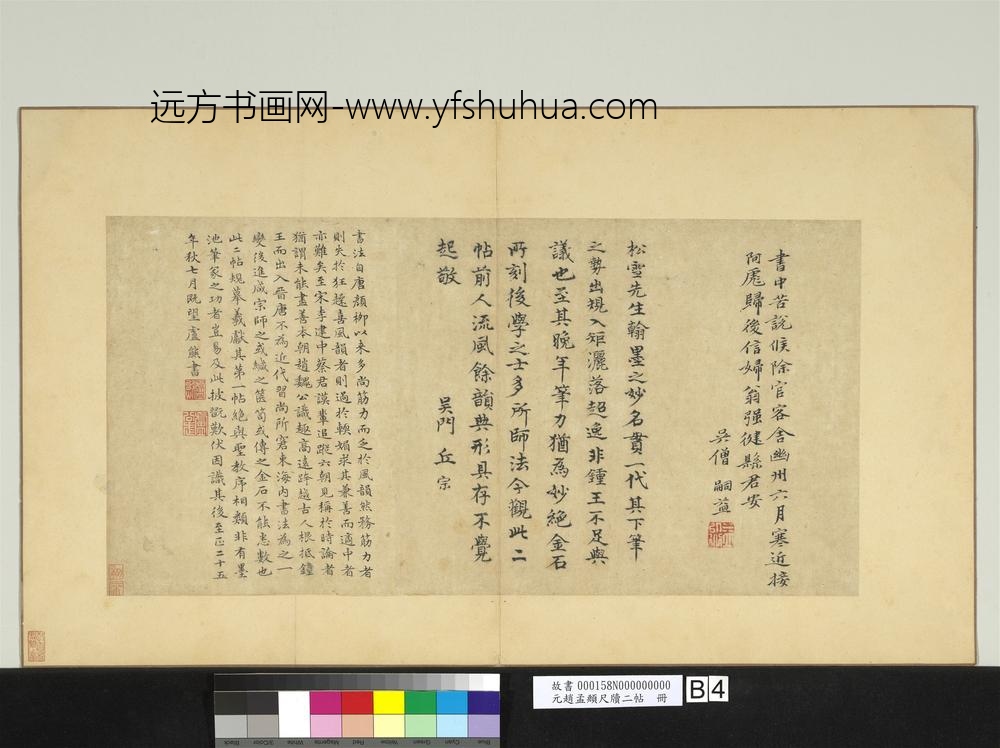 远方书画网-www.yfshuhua.com
書中苦說候除官客舍幽州六月寒近接
阿㢙歸後信婦翁强健縣君安
吳僧 嗣益
松雪先生翰墨之妙名貫一代其下筆
之勢出規入矩灑落超逸非鍾王不足與
議也至其晚年筆力猶為妙絕金石
所刻後學之士多所師法今觀此二
帖前人流風餘韻典形具存不覺
起敬
吳門 丘 宗
書法自唐顏柳以来多尚筋力而乏於風韻然務筋力者
則失於狂躁喜風韻者則過於軟媚求其兼善而適中者
亦難矣至宋李建中蔡君謨輩追蹤六朝見稱於時論者
猶謂未能盡善本朝趙魏公識趣高遠跨越古人根柢鍾
王而出入晉唐不為近代習尚所窘東海內書法為之一
變後進咸宗師之或緘之篋笥或傳之金石不能悉數也
此二帖規摹羲獻其第一帖絕與聖教序相類非有墨
池筆冢之功者豈易及此披翫歎伏因識其後至正二十五
年秋七月既望盧熊書
故書 000158N000000000
元趙孟頫尺牘二帖 冊
B 4
Black
3/Color
White
Magenta
Red
Yellow
Green
Cyan
Blue